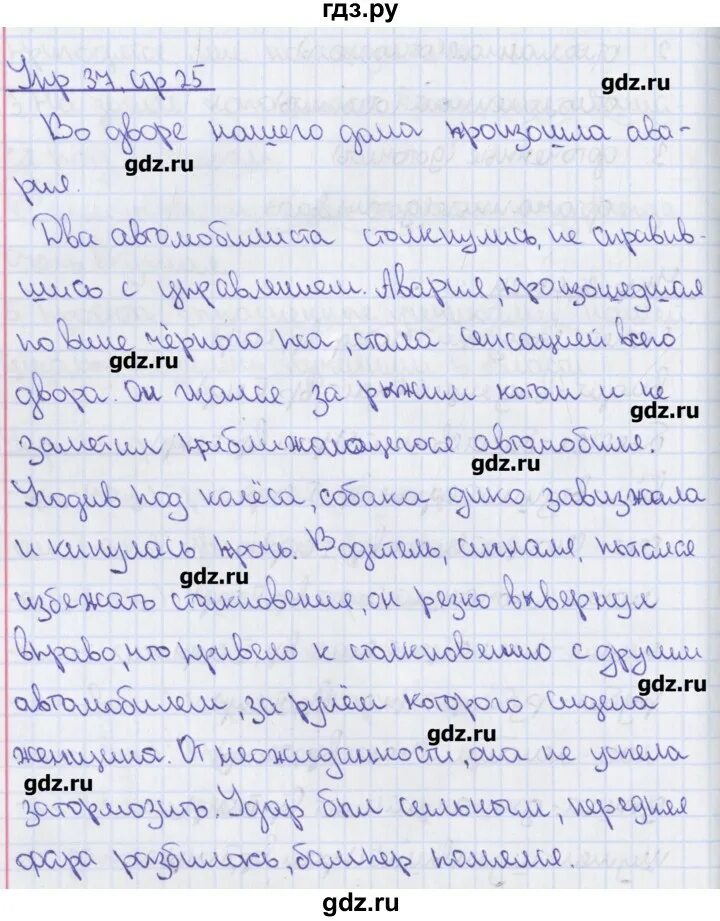 гдз.ру
Упр 37, стр 25
gdz.ru
Во дворе нашего дома произошла ава-
gdz.ru
рия.
Два автомобилиста столкнулись, не справив-
шись с управлением. Авария, произошедшая
по вине чёрного пса, стала сенсацией всего
gdz.ru
двора. Он гнался за рыжим котом и не
gdz.ru
заметил приближающегося автомобиля.
gdz.ru
Угодив под колёса, собака дико завизжала
и кинулась прочь. Водитель, сигналя, пытался
gdz.ru
избежать столкновения, он резко вывернул
вправо, что привело к столкновению с другим
gdz.ru
автомобилем, за рулём которого сидела
gdz.ru
женщина. От неожиданности, она не успела
gdz.ru
затормозить. Удар был сильным, передняя
фара разбилась, бампер помялся.
gdz.ru